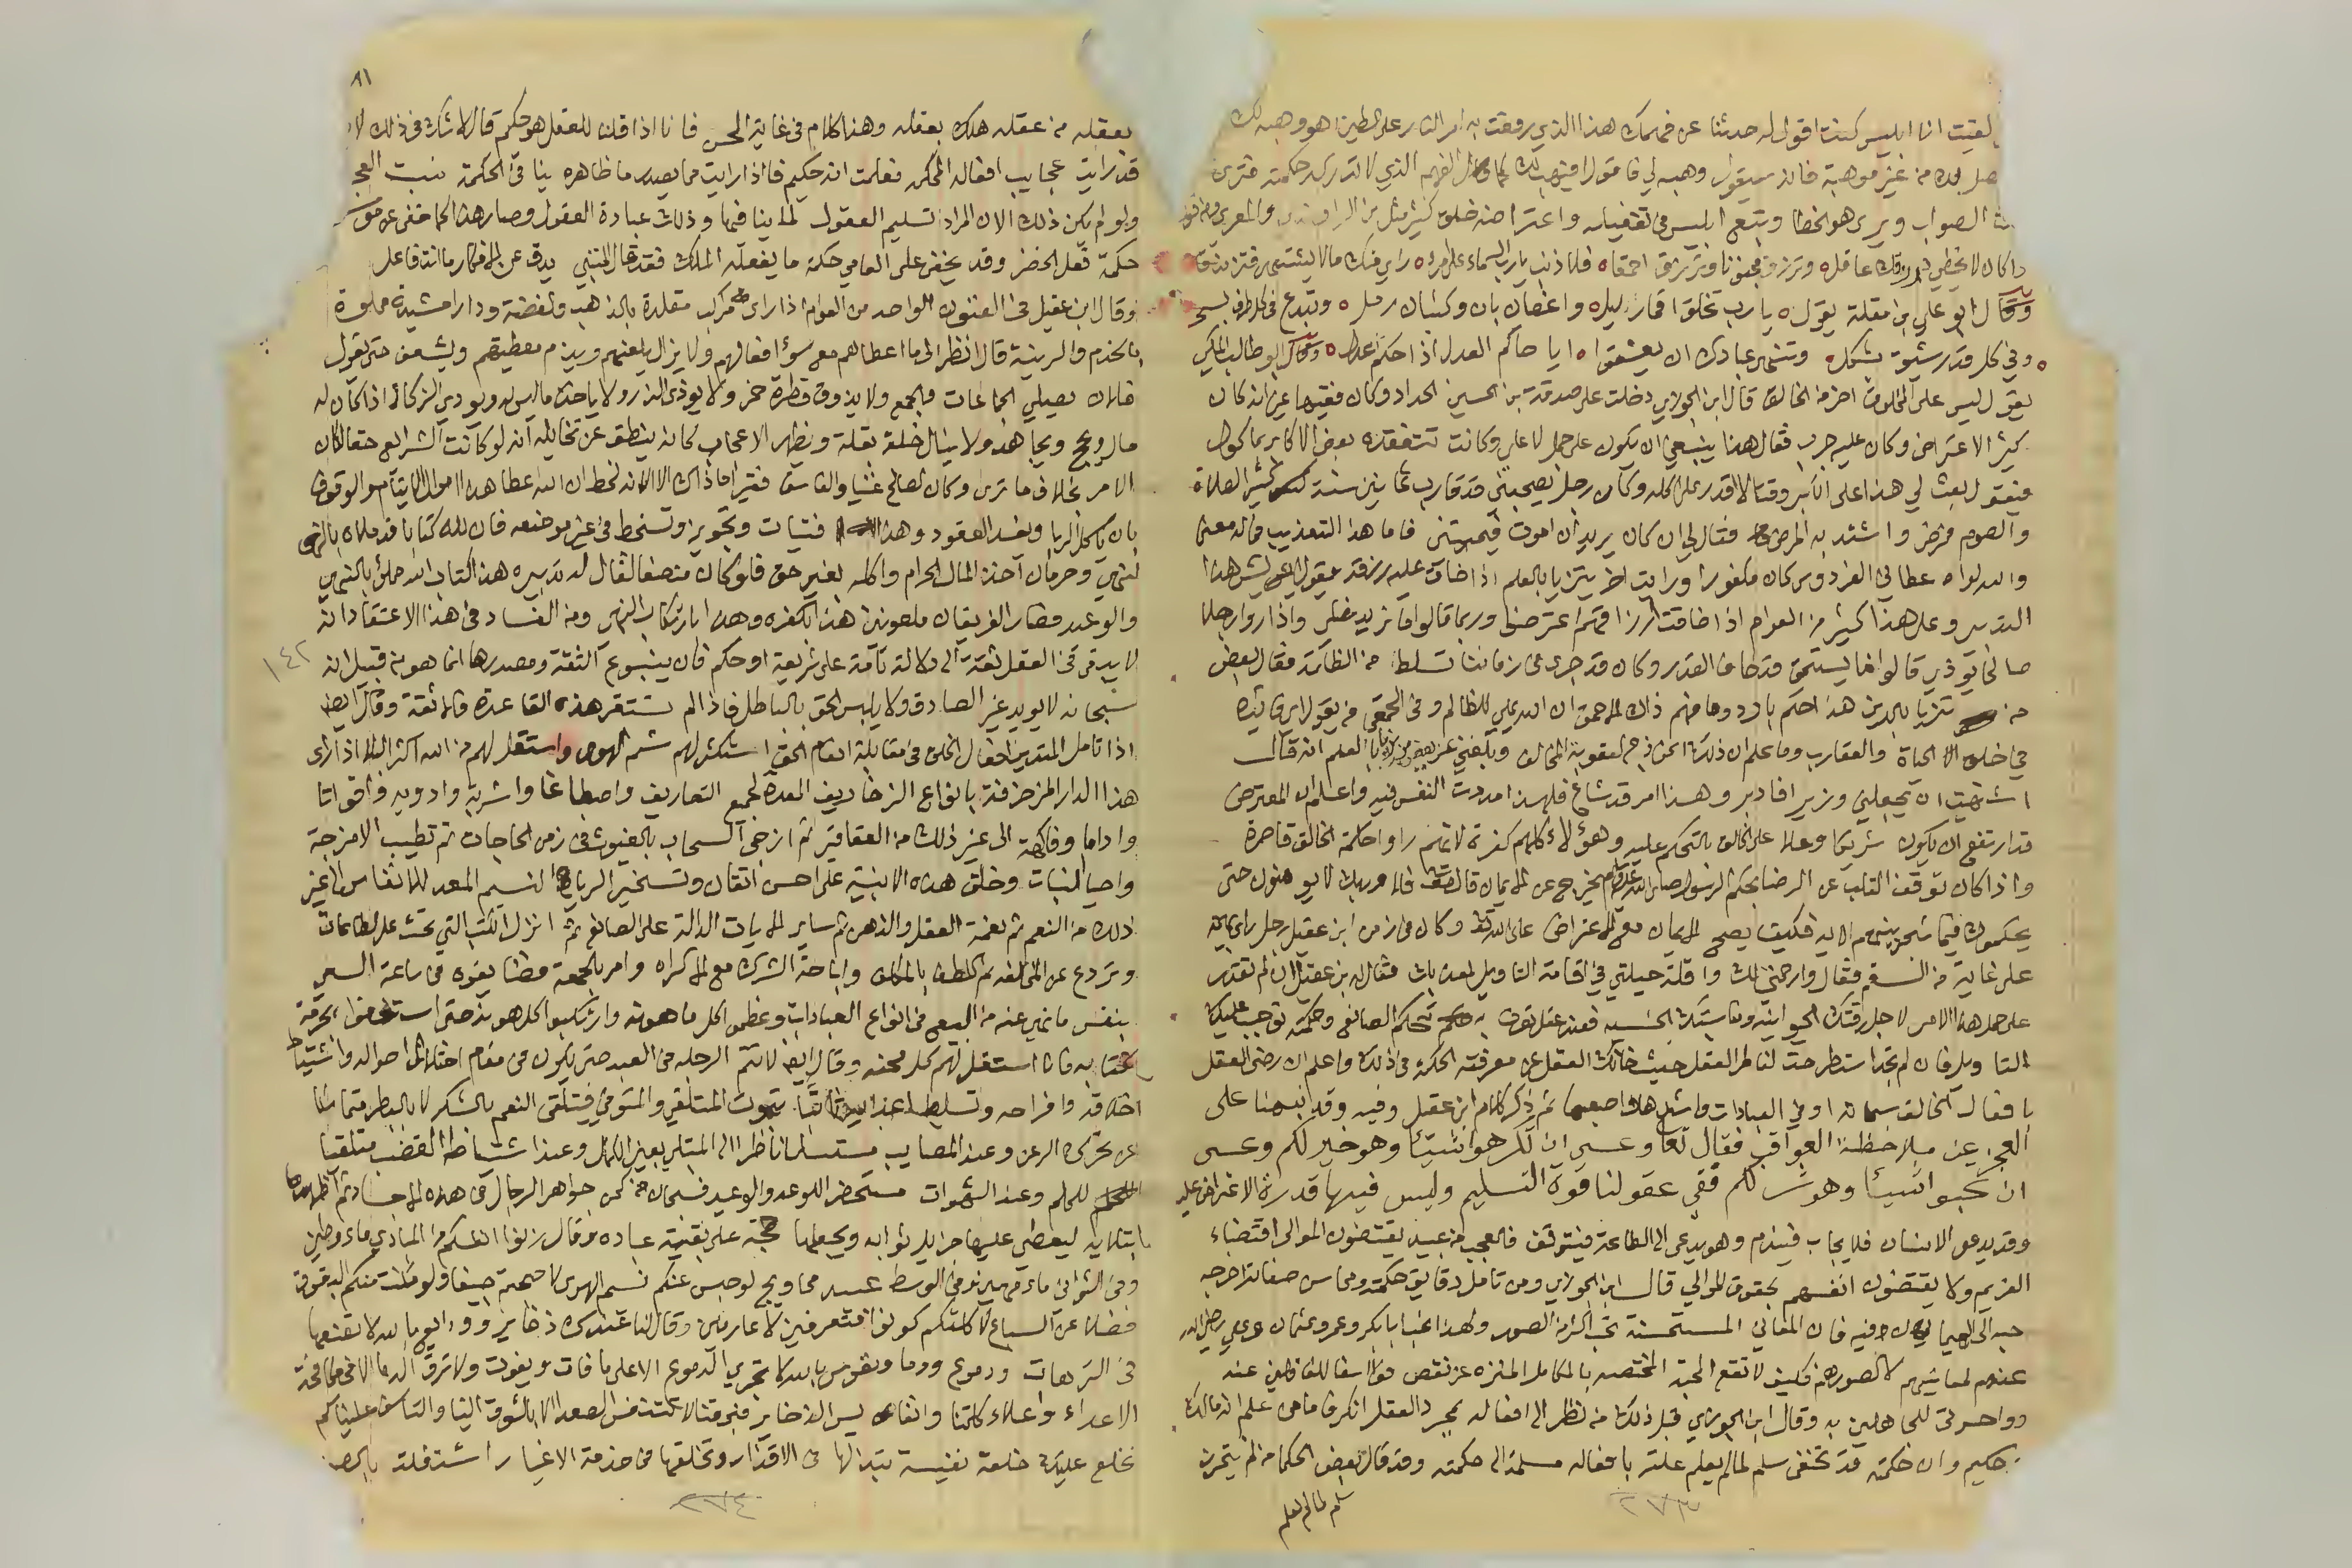 لقيت انا ابليس كنت اقول له حدثنا عن فهمك هذا الذي رفعت به امر النار على الطين اهو وهبه لك
حصل لك من غير موهبة فانه سيقول وهبه لي فاقول افيهب لك كمال الفهم الذي لا تدركه حكمته فترى
الصواب ويرى هو الخطا وتبع ابليس في تغفيله واعتراضه خلق كثير مثل ابن الراوندي والمعري ومن قوله
اذا كان لا يحظى برزقك عاقل وترزق مجنونا وترزق احمقا فلا ذنب يا رب السماء على امرء راى منك ما لا يشتهي فتزندقا
وقال ابو علي بن مقلة يقول يا رب تخلق اقمار ليل واغصان بان وكثبان رمل وتبدع في كل طرف بسحر
وفي كل قد رشيق بشكل وتنهى عبادك ان يعشقوا ايا حاكم العدل اذا حكم عدل وقال ابو طالب المكي
يقول ليس على المخلوق اضر من الخالق قال ابن الجوزي دخلت على صدقة بن الحسين الحداد وكان فقيها غير انه كان
كثير الاعتراض وكان عليه جرب فقال هذا ينبغي ان يكون على جمل لا علي وكانت تتفقده بعض الاكابر بماكول
فيقول بعث لي هذا على الكبر وقت لا اقدر على اكله وكان رجل يصحبني قد قارب ثمانين سنة كثير الصلاة
والصوم فمرض واشتد به المرض فقال لي ان كان يريد ان اموت فيميتني فاما هذا التعذيب فما له معنى
والله لو اعطاني الفردوس كان مكفورا ورايت اخر يتزيا بالعلم اذا ضاق عليه رزقه يقول ايش هذا
التدبير وعلى هذا كثير من العوام اذا ضاقت ارزاقهم اعترضوا وربما قالوا ما نريد نصلي واذا راوا رجلا
صالحا يوذى قالوا ما يستحق قدحا في القدر وكان قد جرى في زماننا تسلط من الظلمة فقال بعض
من تزيا بالدين هذا حكم بارد وما فهم ذاك الاحمق ان الله يملي للظالم وفي الحمقى من يقول اي فائدة
في خلق الحياة والعقارب وما علم ان ذلك انموذج لعقوبة المخالف وبلغني عن بعض من تزيا بالعلم انه قال
اشتهيت ان يجعلني وزيرا فادبر وهذا امر قد شاع فلهذا مددت النفس فيه واعلم ان المعترض
قد ارتفع ان يكون شريكا وعلا على الخالق بالتحكم عليه وهؤلاء كلهم كفرة لانهم راوا حكمة الخالق قاصرة
واذا كان توقف القلب عن الرضا بحكم الرسول صلى الله عليه وسلم يخرج عن الايمان قال تعالى فلا وربك لا يومنون حتى
يحكموك فيما شجر بينهم الاية فكيف يصح الايمان مع الاعتراض على الله تعالى وكان في زمن ابن عقيل رجل راى بهيمة
على غاية من السقم فقال وارحمتي لك واقلة حيلتي في اقامة التاويل لمعذبك فقال له ابن عقيل ان لم تقدر
على حمل هذا الامر لاجل رقتك الحيوانية ومناسبتك الجنسية فعندك عقل تعرف به تحكم الصانع وحكمته توجب عليك
التاويل فان لم تجد استطرحت لفاطر العقل حيث خانك العقل عن معرفة الحكمة في ذلك واعلم ان رضى العقل
بافعال الخالق سبحانه اوفى العبادات واشدها واصعبها ثم ذكر كلام ابن عقيل وفيه وقد نبهنا على
العجز عن ملاحظة العواقب فقال تعالى وعسى ان تكرهوا شيئا وهو خير لكم وعسى
ان تحبوا شيئا وهو شر لكم ففي عقولنا قوة التسليم وليس فيها قدرة الاعتراض عليه
وقد يدعو الانسان فلا يجاب فيندم وهو يدعى الى الطاعة فيتوقف فالعجب من عبيد يقتضون الموالي اقتضاء
الغريم ولا يقتضون انفسهم بحقوق الموالي قال ابن الجوزي ومن تامل دقايق حكمته ومحاسن صفاته اخرجه
حبه الى الهيمان فيه فان المعاني المستحسنة تحب اكثر من الصور ولهذا نحب ابا بكر وعمر وعثمان وعلي رضي الله
عنهم لمعانيهم لا لصورهم فكيف لا تقع المحبة المختصة بالكامل المنزه عن نقص فوا اسفا للغافلين عنه
وواحسرتى للجاهلين به وقال ابن الجوزي قبل ذلك من نظر الى افعاله بمجرد العقل انكر فاما من علم انه مالك
حكيم وان حكمته قد تخفى سلم لما لم يعلم علته بافعاله مسلما الى حكمته وقد قال بعض الحكما من لم يتحرز
سلم لما لم يعلم
٢٧٣
٨١
بعقله من عقله هلك بعقله وهذا كلام في غاية الحسن فانا اذا قلنا للعقل هو حكيم قال لا شك في ذلك لا
قد رايت عجايب افعاله المحكمة فعلمت انه حكيم فاذا رايت مما يصدر ما ظاهره ينافي الحكمة نسبت العجز
ولو لم يكن ذلك الان المراد تسليم العقول لما ينافيها وذلك عبادة العقول وصار هذا كما خفي عن موسى
حكمة فعل الخضر وقد يخفى على العامي حكمة ما يفعله الملك فقد قال المتنبي يدق عن الافكار ما انت فاعل
وقال ابن عقيل في الفنون الواحد من العوام اذا راى مراكب مقلدة بالذهب والفضة ودارا مشيدة مملوة
بالخدم والزينة قال انظر الى ما اعطاهم مع سوء افعالهم ولا يزال يلعنهم ويذم معطيهم ويشعف حتى يقول
فلان يصلي الجماعات والجمع ولا يذوق قطرة خمر ولا يوذي الذر ولا ياخذ ما ليس له ويودي الزكاة اذا كان له
مال ويحج ويجاهد ولا ينال خلة بقلة ويظهر الاعجاب كانه ينطق عن تخايله انه لو كانت الشرايع حقا لكان
الامر بخلاف ما ترى وكان الصالح غنيا والفاسق فقيرا ما ذاك الا لانه لحظ ان الله اعطا هذا اموال الايتام والوقوف
بان ياكل الربا ويفسد العقود وهذا افتيات وتجويز وتسخط في غير موضعه فان لله كتابا قد ملاه بالنهي
لنهي وحرمان اخذ المال الحرام واكله بغير حق فلو كان منصفا لقال له تدبير هذا كتاب الله مملؤ بالنهي
والوعيد فصار الفريقان ملعونين هذا بكفره وهذا بارتكاب النهي ومن الفساد في هذا الاعتقاد انه
لا يبقى في العقل ثقة الى دلالة قائمة على شريعة او حكم فان ينبوع الثقة ومصدرها انما هو من قبل انه
١٤٢
سبحانه لا يويد غير الصادق ولا يلبس الحق بالباطل فاذا لم تستقر هذه القاعدة فلا ثقة وقال ايضا
اذا تامل المتدين افعال الخلق في مقابلة انعام الحق استكثر لهم شم الهوى واستقل لهم من الله اكثر البلا اذا راى
هذا الدار المزخرفة بانواع الزخاريف المعدة لجميع التصاريف واصطباغا واشربة وادوية واقواتا
واداما وفاكهة الى غير ذلك من العقاقير ثم ارخى السحاب بالغيوث في زمن الحاجات ثم تطييب الامزجة
واحيا النبات وخلق هذه الابنية على احسن اتقان وتسخير الرياح النسيم المعد للانفاس الى غير
ذلك من النعم ثم نعمة العقل والذهن ثم ساير الايات الدالة على الصانع ثم انزل الكتب التي تحث على الطاعات
وتردع عن المخالفة ثم اللطف بالمكلف واباحة الشرك مع الاكراه وامر بالجمعة فضايقوه في ساعة السعي
بنفس ما نهي عنه من البيع في انواع العبادات وعظموا كل ما هونه وارتكبوا كل هوته حتى استخفوا بحرمة
كتابه فانا استقل لهم كل محنة وقال ايضا لا تتم الرجلة في العبد حتى يكون في مقام اختلاف احواله واشتياط
اخلاقه وافراحه وتسلط اعدايه ثابتا بثبوت المتلقي والمتوقي فيتلقى النعم بالشكر لا بالبطر متماسكا
عن تحرك الرعن وعند المصايب مستسلما ناظرا الى المبتلي بعين الكمال وعند اشتياط الغضب متلقيا
للحلم وعند الشهوات مستحضرا للوعد والوعيد فسبحان من كمن جواهر الرجال في هذه الاجساد ثم اظهرها
بابتلايه ليعطي عليها جزيل ثوابه ويجعلها حجة على بقية عباده وقال زنوا انفسكم في المبادي ماء وطين
وفي الثواني ماء مهين وفي الوسط عبيد محاويج لو حبس عنكم نسيم الهوى لاصبحتم جيفا ولو مكنت منكم البقوق
فضلا عن السباع لاكلتكم كونوا متعرفين لا عارفين وقال لنا عندك ذخاير وودايع بالله لا تضعها
في الترهات ودموع ودما ونفوس بالله لا تجري الدموع الا على ما فات ويفوت ولا ترق الدما الا في مكافحة
الاعداء واعلاء كلمتنا وانفاس من الذخاير فبحقنا لا تتنفس الصعداء الا بالشوق الينا والتاسف علينا كم
نخلع عليك خلعة نفيسة تبتذلها في الاقذار وتخلقها في خدمة الاغيار اشتغلت
٢٧٤